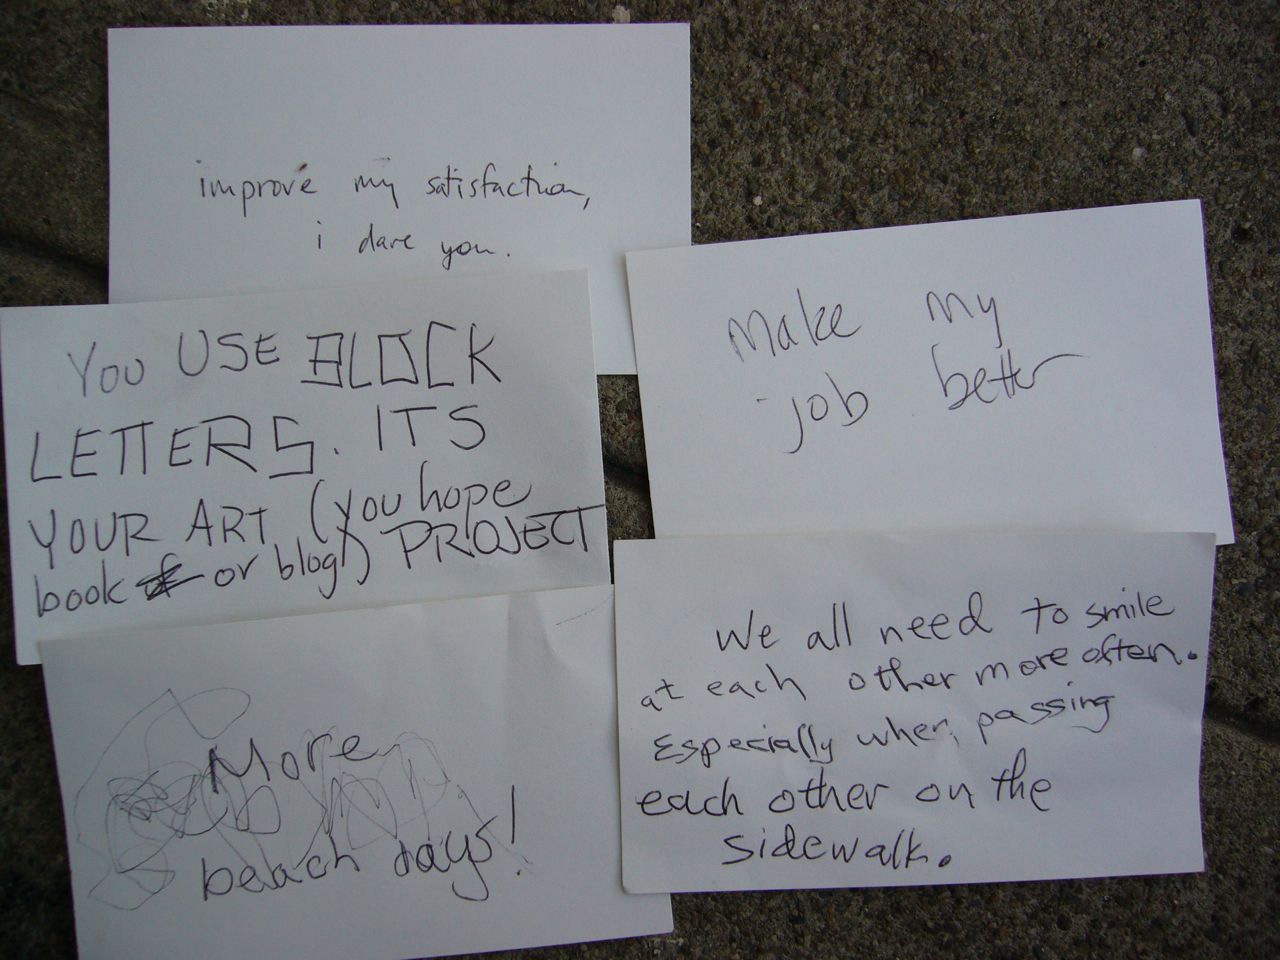 improve my satisfaction,
i dare you.
YOU USE BLOCK
LETTERS. ITS
YOUR ART (you hope
book or blog!) PROJECT
Make my
job better
More
beach days!
We all need to smile
at each other more often.
Especially when passing
each other on the
sidewalk.